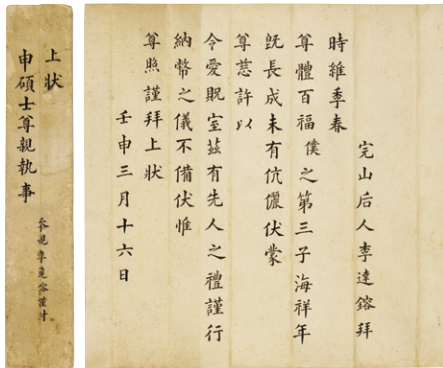 完山后人李達鎔拜
時維季春
尊體百福僕之第三子海祥年
旣長成未有伉儷伏蒙
尊慈許以
令愛貺室玆有先人之禮謹行
納幣之儀不備伏惟
尊照謹拜上狀
壬申三月十六日
上狀
申碩士尊親執事
忝親李達鎔謹封